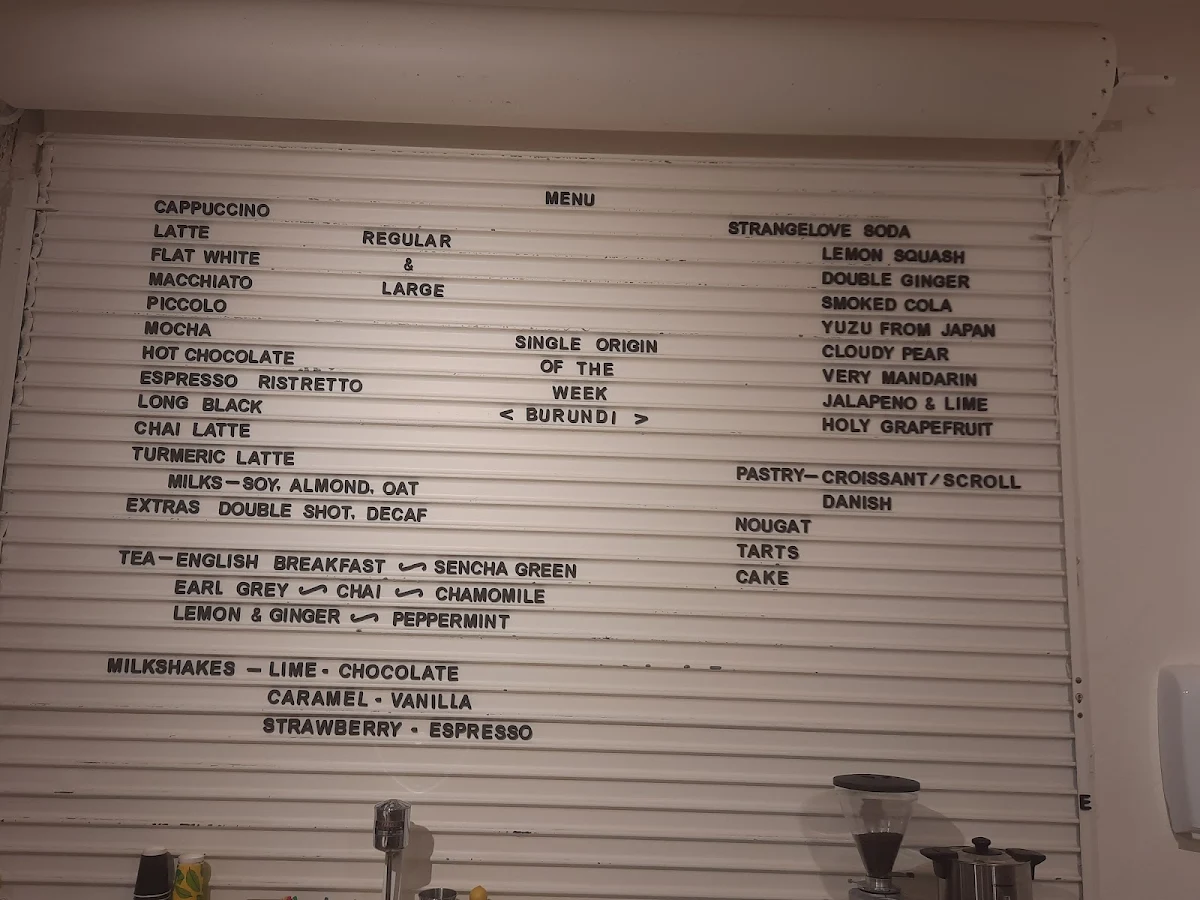 MENU
CAPPUCCINO
LATTE
FLAT WHITE
MACCHIATO
PICCOLO
MOCHA
HOT CHOCOLATE
ESPRESSO RISTRETTO
LONG BLACK
CHAI LATTE
TURMERIC LATTE
MILKS—SOY, ALMOND, OAT
EXTRAS DOUBLE SHOT, DECAF
REGULAR
&
LARGE
SINGLE ORIGIN
OF THE
WEEK
< BURUNDI >
TEA—ENGLISH BREAKFAST ~ SENCHA GREEN
EARL GREY ~ CHAI ~ CHAMOMILE
LEMON & GINGER ~ PEPPERMINT
MILKSHAKES — LIME - CHOCOLATE
CARAMEL - VANILLA
STRAWBERRY - ESPRESSO
STRANGELOVE SODA
LEMON SQUASH
DOUBLE GINGER
SMOKED COLA
YUZU FROM JAPAN
CLOUDY PEAR
VERY MANDARIN
JALAPENO & LIME
HOLY GRAPEFRUIT
PASTRY—CROISSANT/SCROLL
DANISH
NOUGAT
TARTS
CAKE
E